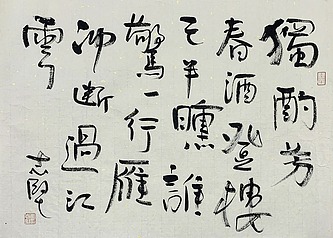 獨酌芳
春酒登樓
已半曛誰
驚一行雁
沖斷過江
雲